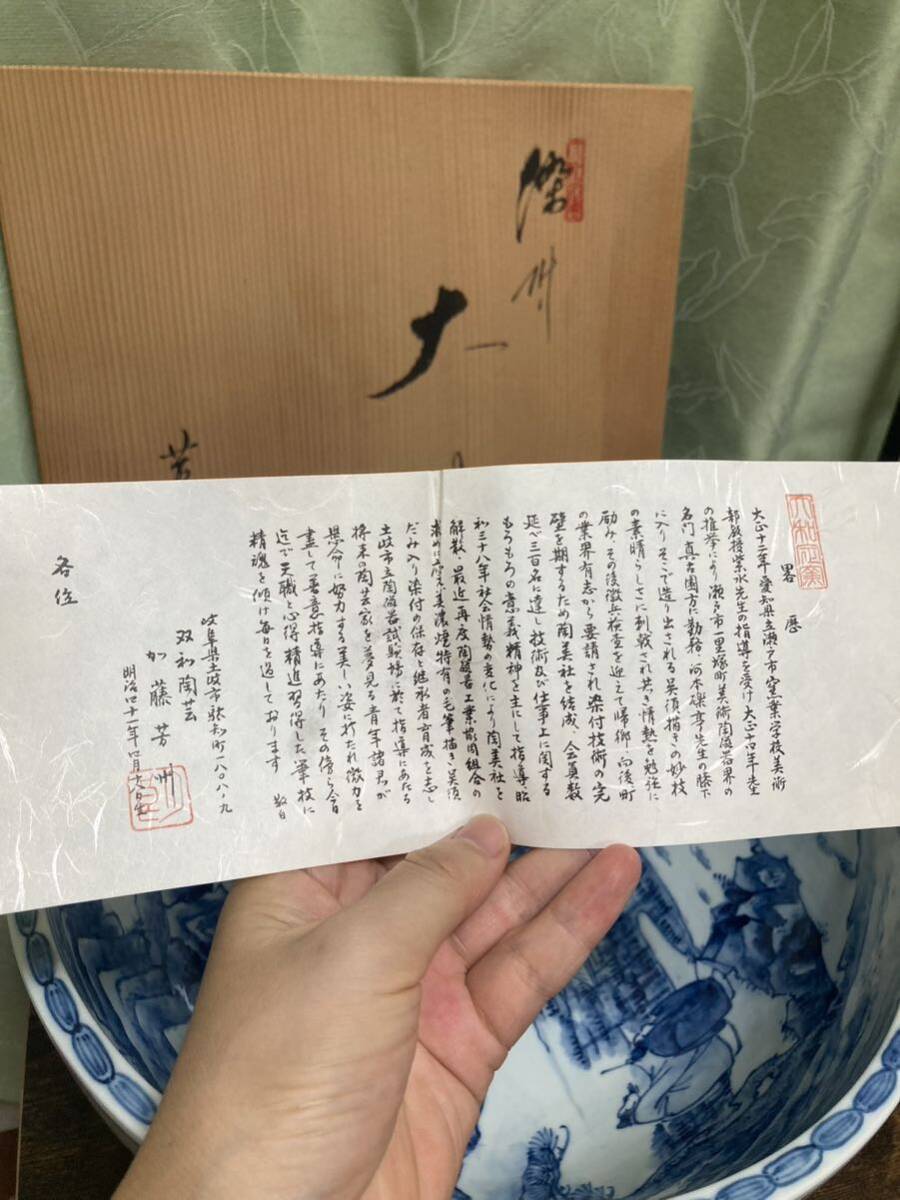 略歴
大正十二年愛知県立瀬戸市窯業学校美術
部教授紫水先生の指導を受け大正十四年先生
の推挙により瀬戸市一里塚町美術陶磁器界の
名門真古園方に勤務、河本礫亭先生の膝下
に入りそこで造り出される呉須描きの妙技
の素晴らしさに刺戟され若き情熱を勉強に
励み、その後徴兵検査を迎えて帰郷、向後、町
の業界有志から要請され染付技術の完
壁を期するため陶美社を結成、会員数
延べ三百名に達し技術及び仕事上に関する
もろもろの意義精神を主にして指導、昭
和三十八年社会情勢の変化により陶美社を
解散、最近再度陶磁器工業協同組合の
求めに応じ美濃焼特有の毛筆描き呉須
だみ入り染付の保存と継承者育成を志し
土岐市立陶磁器試験場に於て指導にあたる
将来の陶芸家を夢見る青年諸君が
懸命に努力する美しい姿に打たれ微力を
盡して善意指導にあたりその傍ら今日
迄で天職と心得精進習得した筆技に
精魂を傾け毎日を過しております
敬白
岐阜県土岐市駄知町一八〇八・九
双和陶芸
加藤芳州
明治四十一年四月六日生
各位
染
大
芳